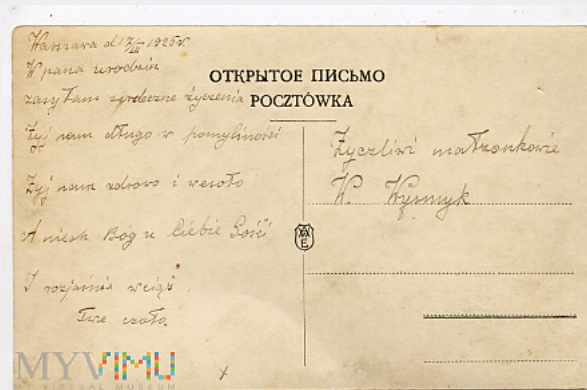 Warszawa d 17/III 1925 r.
W pana urodzin
zasyłam serdeczne życzenia
Żyj nam długo w pomyślności
Żyj nam zdrowo i wesoło
A niech Bóg u Ciebie Gości
I rozjaśnia wciąż
Twe czoło.
ОТКРЫТОЕ ПИСЬМО
POCZTÓWKA
Życzliwi małzonkowie
W. Wysmyk
MYVIMU
MY VIRTUAL MUSEUM